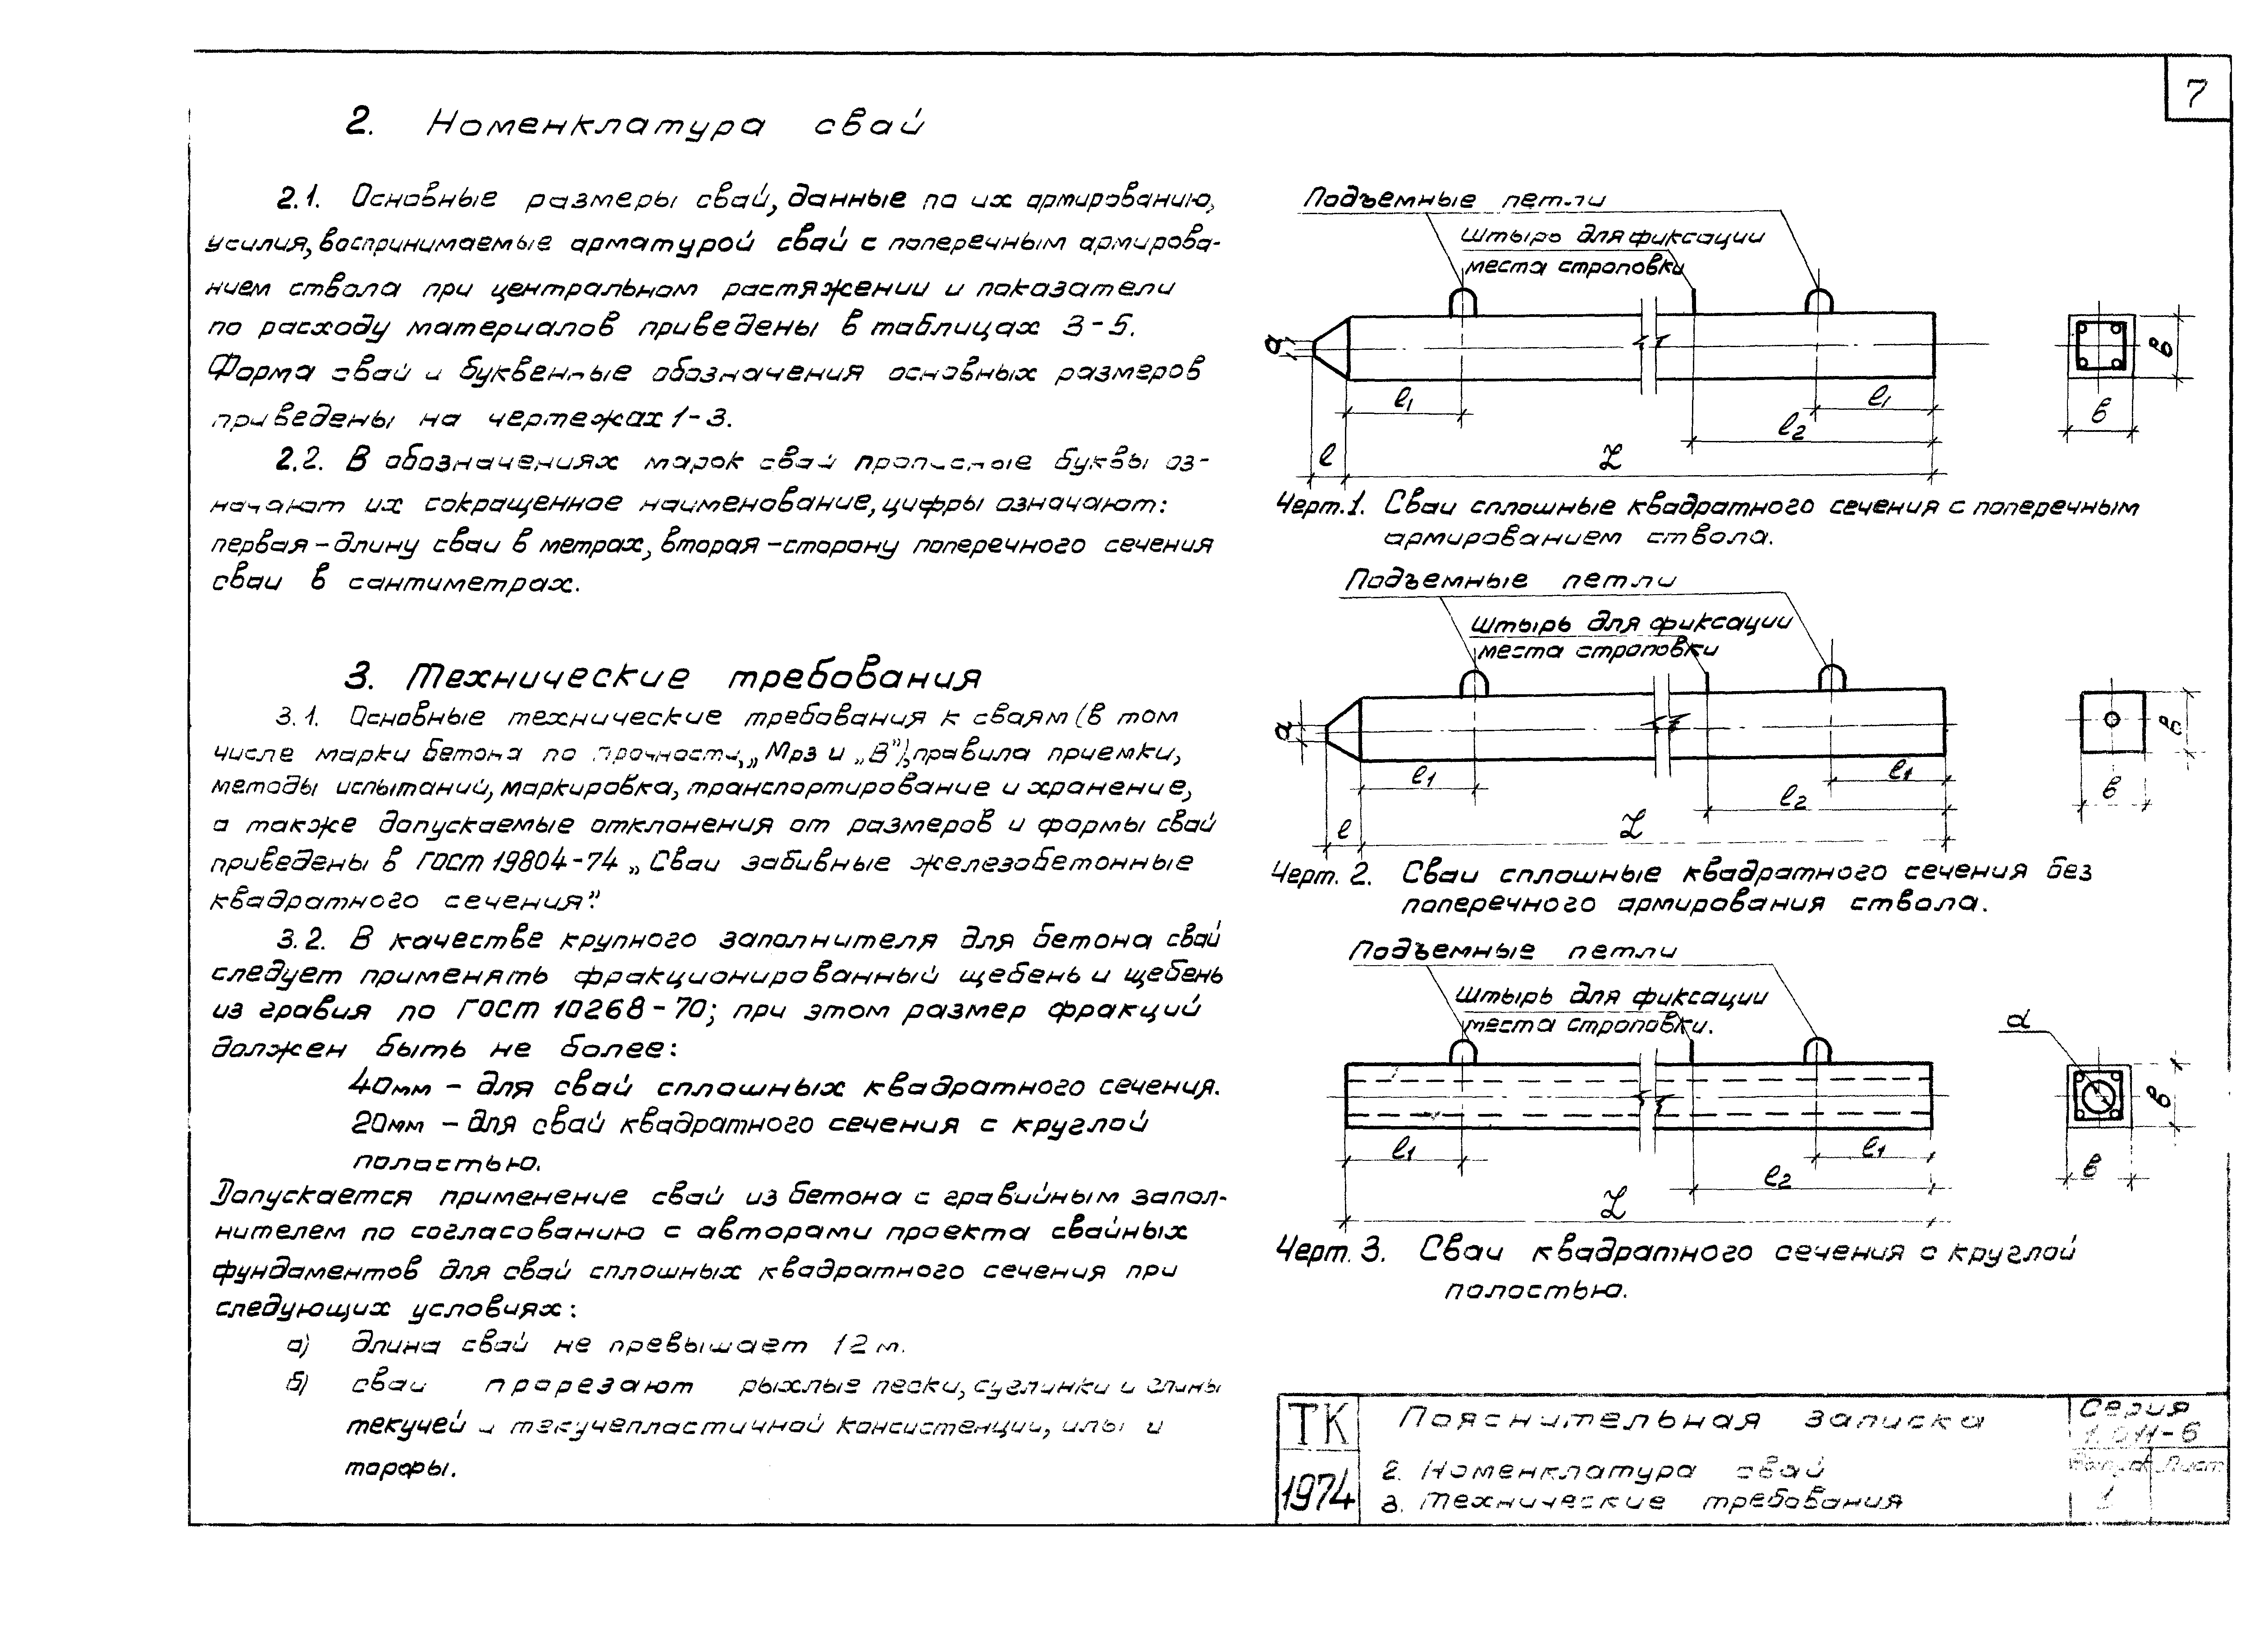 7
2. Номенклатура свай
2.1. Основные размеры свай, данные по их армированию,
усилия, воспринимаемые арматурой свай с поперечным армирова-
нием ствола при центральном растяжении и показатели
по расходу материалов приведены в таблицах 3-5.
Форма свай и буквенные обозначения основных размеров
приведены на чертежах 1-3.
2.2. В обозначениях марок свай прописные буквы оз-
начают их сокращенное наименование, цифры означают:
первая - длину сваи в метрах, вторая - сторону поперечного сечения
сваи в сантиметрах.
3. Технические требования
3.1. Основные технические требования к сваям (в том
числе марки бетона по прочности, „Мрз и „В"), правила приемки,
методы испытаний, маркировка, транспортирование и хранение,
а также допускаемые отклонения от размеров и формы свай
приведены в ГОСТ 19804-74 „Сваи забивные железобетонные
квадратного сечения".
3.2. В качестве крупного заполнителя для бетона свай
следует применять фракционированный щебень и щебень
из гравия по ГОСТ 10268-70; при этом размер фракций
должен быть не более:
40мм - для свай сплошных квадратного сечения.
20мм - для свай квадратного сечения с круглой
полостью.
Допускается применение свай из бетона с гравийным запол-
нителем по согласованию с авторами проекта свайных
фундаментов для свай сплошных квадратного сечения при
следующих условиях:
а) длина свай не превышает 12 м.
б) сваи прорезают рыхлые пески, суглинки и глины
текучей и текучепластичной консистенции, илы и
торфы.
Подъемные петли
Штырь для фиксации
места строповки
а
l1
l1
l2
l
L
в
в
Черт. 1. Сваи сплошные квадратного сечения с поперечным
армированием ствола.
Подъемные петли
Штырь для фиксации
места строповки
а
l1
l1
l2
l
L
в
в
Черт. 2. Сваи сплошные квадратного сечения без
поперечного армирования ствола.
Подъемные петли
Штырь для фиксации
места строповки.
d
l1
l1
l2
L
в
в
Черт. 3. Сваи квадратного сечения с круглой
полостью.
ТК
1974
Пояснительная записка
2. Номенклатура свай
3. Технические требования
Серия
1.011-6
Выпуск Лист
1